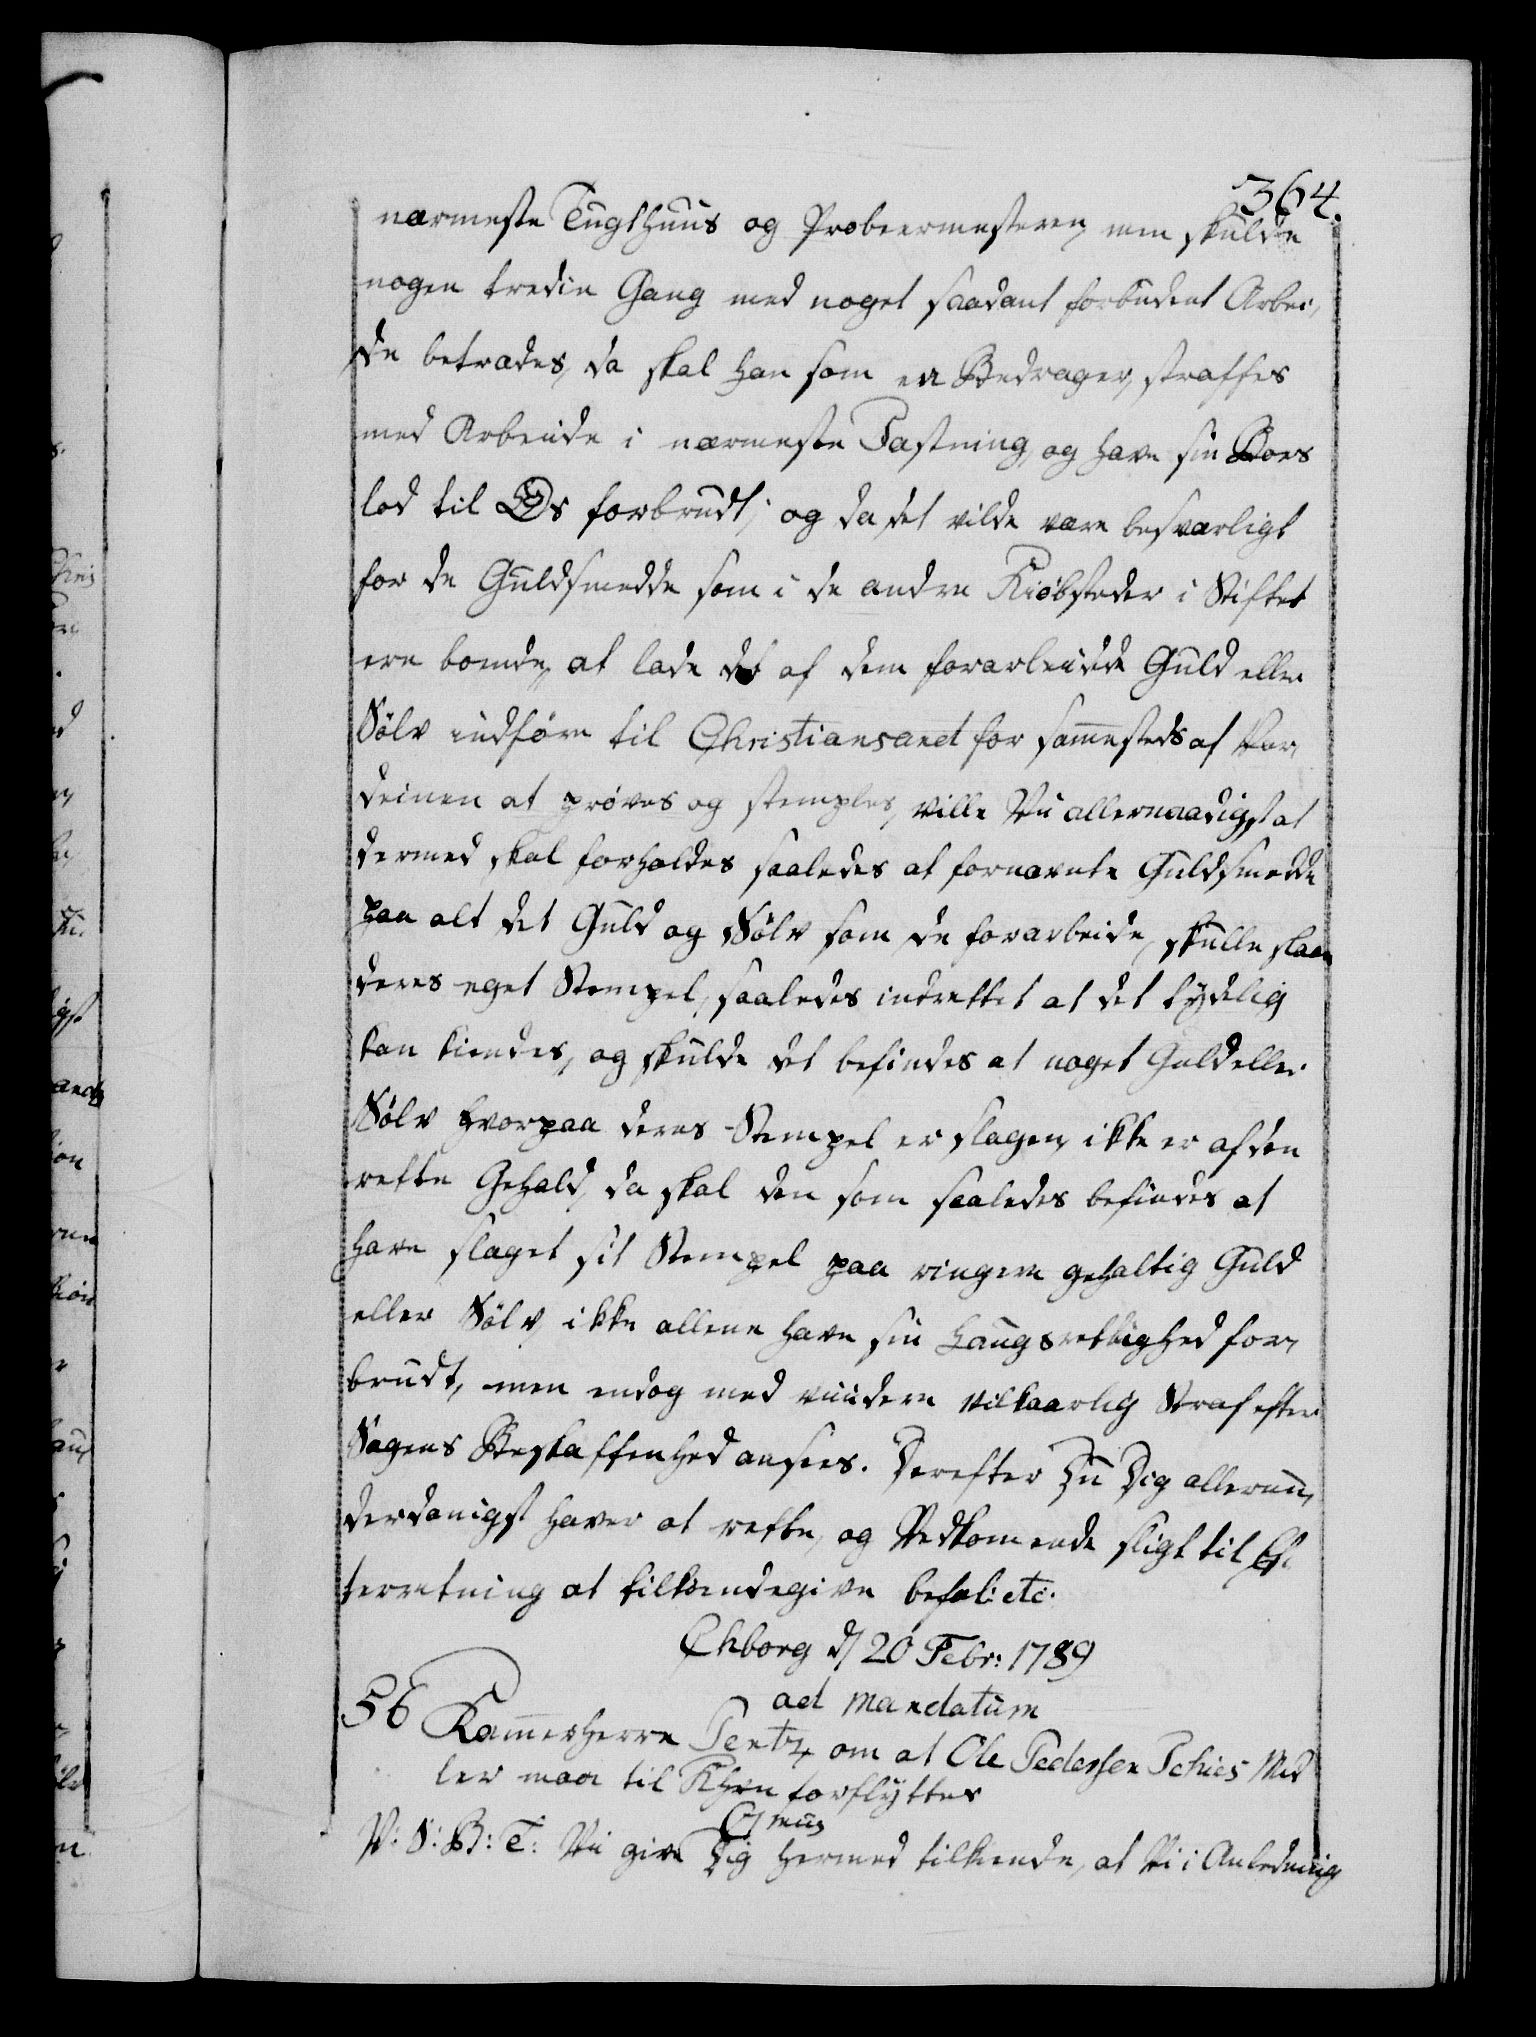 364.
nærmeste Tugthuus og Probeermesteren, men skulde
nogen tredie Gang med noget saadant forbudent Arbei,
de betrædes, da skal han som en Bedrager, straffes
med Arbeide i nærmeste Fæstning, og have sin Boes
lod til Os forbrudt; og da det vilde være besværligt
for de Guldsmedde som i de andre Kiøbstæder i Stiftet
ere boende, at lade det af dem forarbeidede Guld eller
Sölv indføre til Christiansand for sammesteds af Var,
deinen at prøves og stemples, ville Vi allernaadigst at
dermed skal forholdes saaledes at fornævnte Guldsmedde
paa alt det Guld og Sölv som de forarbeide, skulle slaae
deres eget Stempel, saaledes indrettet at det tydelig
kan kiendes, og skulde det befindes at noget Guld eller
Sölv hvorpaa deres Stempel er slagen, ikke er af den
rette Gehald, da skal den som saaledes befindes at
have slaget sit Stempel paa ringere gehaltig Guld
eller Sölv, ikke allene have sin Laugsrettighed for,
brudt, men endog med viidere vilkaarlig Straf efter
Sagens Beskaffenhed ansees. Derefter Du Dig allerun,
derdanigst haver at rette, og Vedkommende sligt til Ef,
terretning at tilkiendegive befal: etc.
Chborg d/ 20 Febr: 1789
ad mandatum
56 Kammerherre Pentz, om at Ole Pedersen Schies Mid
ler maa til Khvn forflyttes
V: S: B: T: Vi give Dig hermed tilkiende, at Vi i Anledning